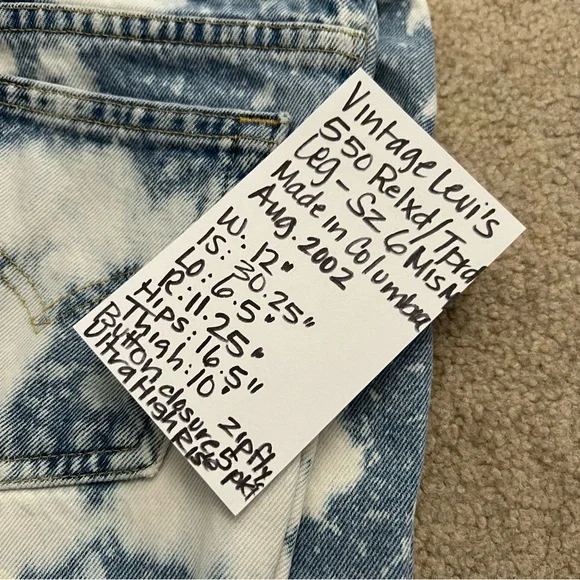 Vintage Levi's
550 Relxd/Tprd
Leg - Sz 6 Mis M
Made in Columbia
Aug. 2002
W. 12"
IS: 30.25"
LO: 6.5"
R: 11.25"
Hips: 16.5"
Thigh: 10"
Button closure Zip fly
Ultra High Rise 5 pkt